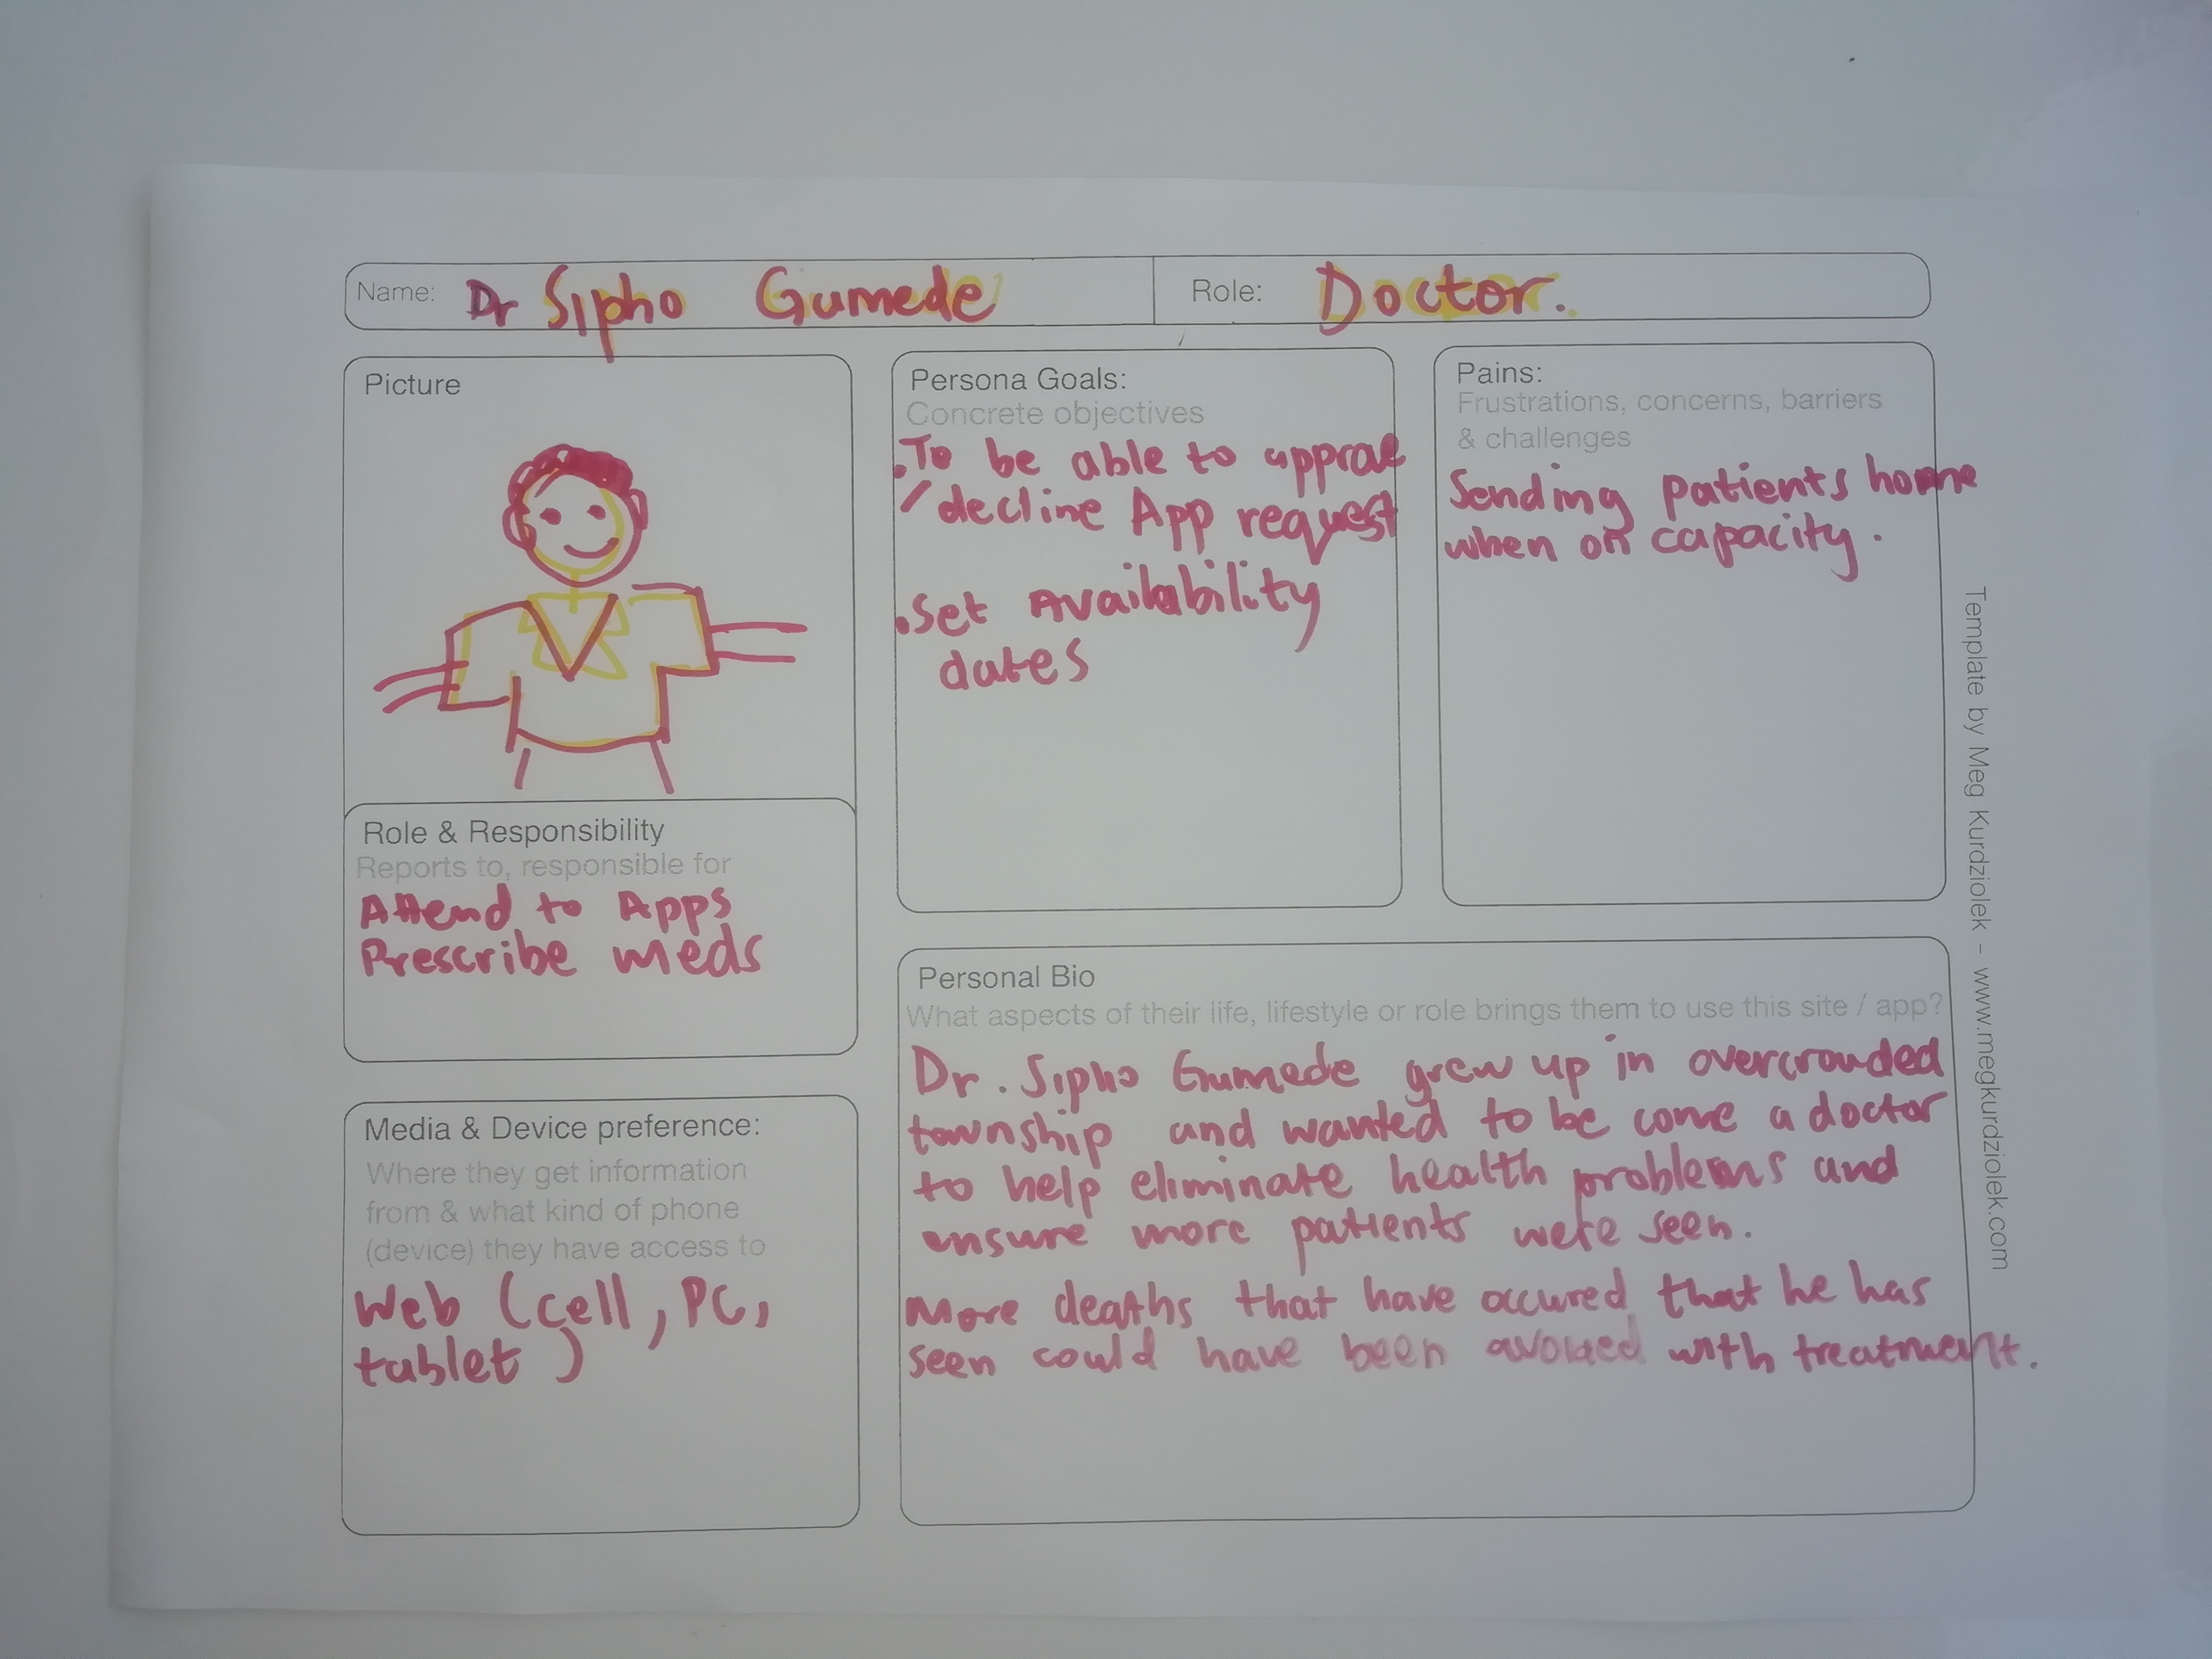 Name: Dr Sipho Gumede
Role: Doctor.
Picture
Role & Responsibility
Reports to, responsible for
Attend to Apps
Prescribe meds
Media & Device preference:
Where they get information
from & what kind of phone
(device) they have access to
Web (cell, PC,
tablet)
Persona Goals:
Concrete objectives
. To be able to
/ decline App request
. Set Availability
dates
Pains:
Frustrations, concerns, barriers
& challenges
Sending patients home
when on capacity.
Personal Bio
What aspects of their life, lifestyle or role brings them to use this site / app?
Dr. Sipho Gumede grew up in overcrowded
township and wanted to be come a doctor
to help eliminate health problems and
ensure more patients were seen.
More deaths that have occured that he has
seen could have been avoided with treatment.
Template by Meg Kurdziolek - www.megkurdziolek.com